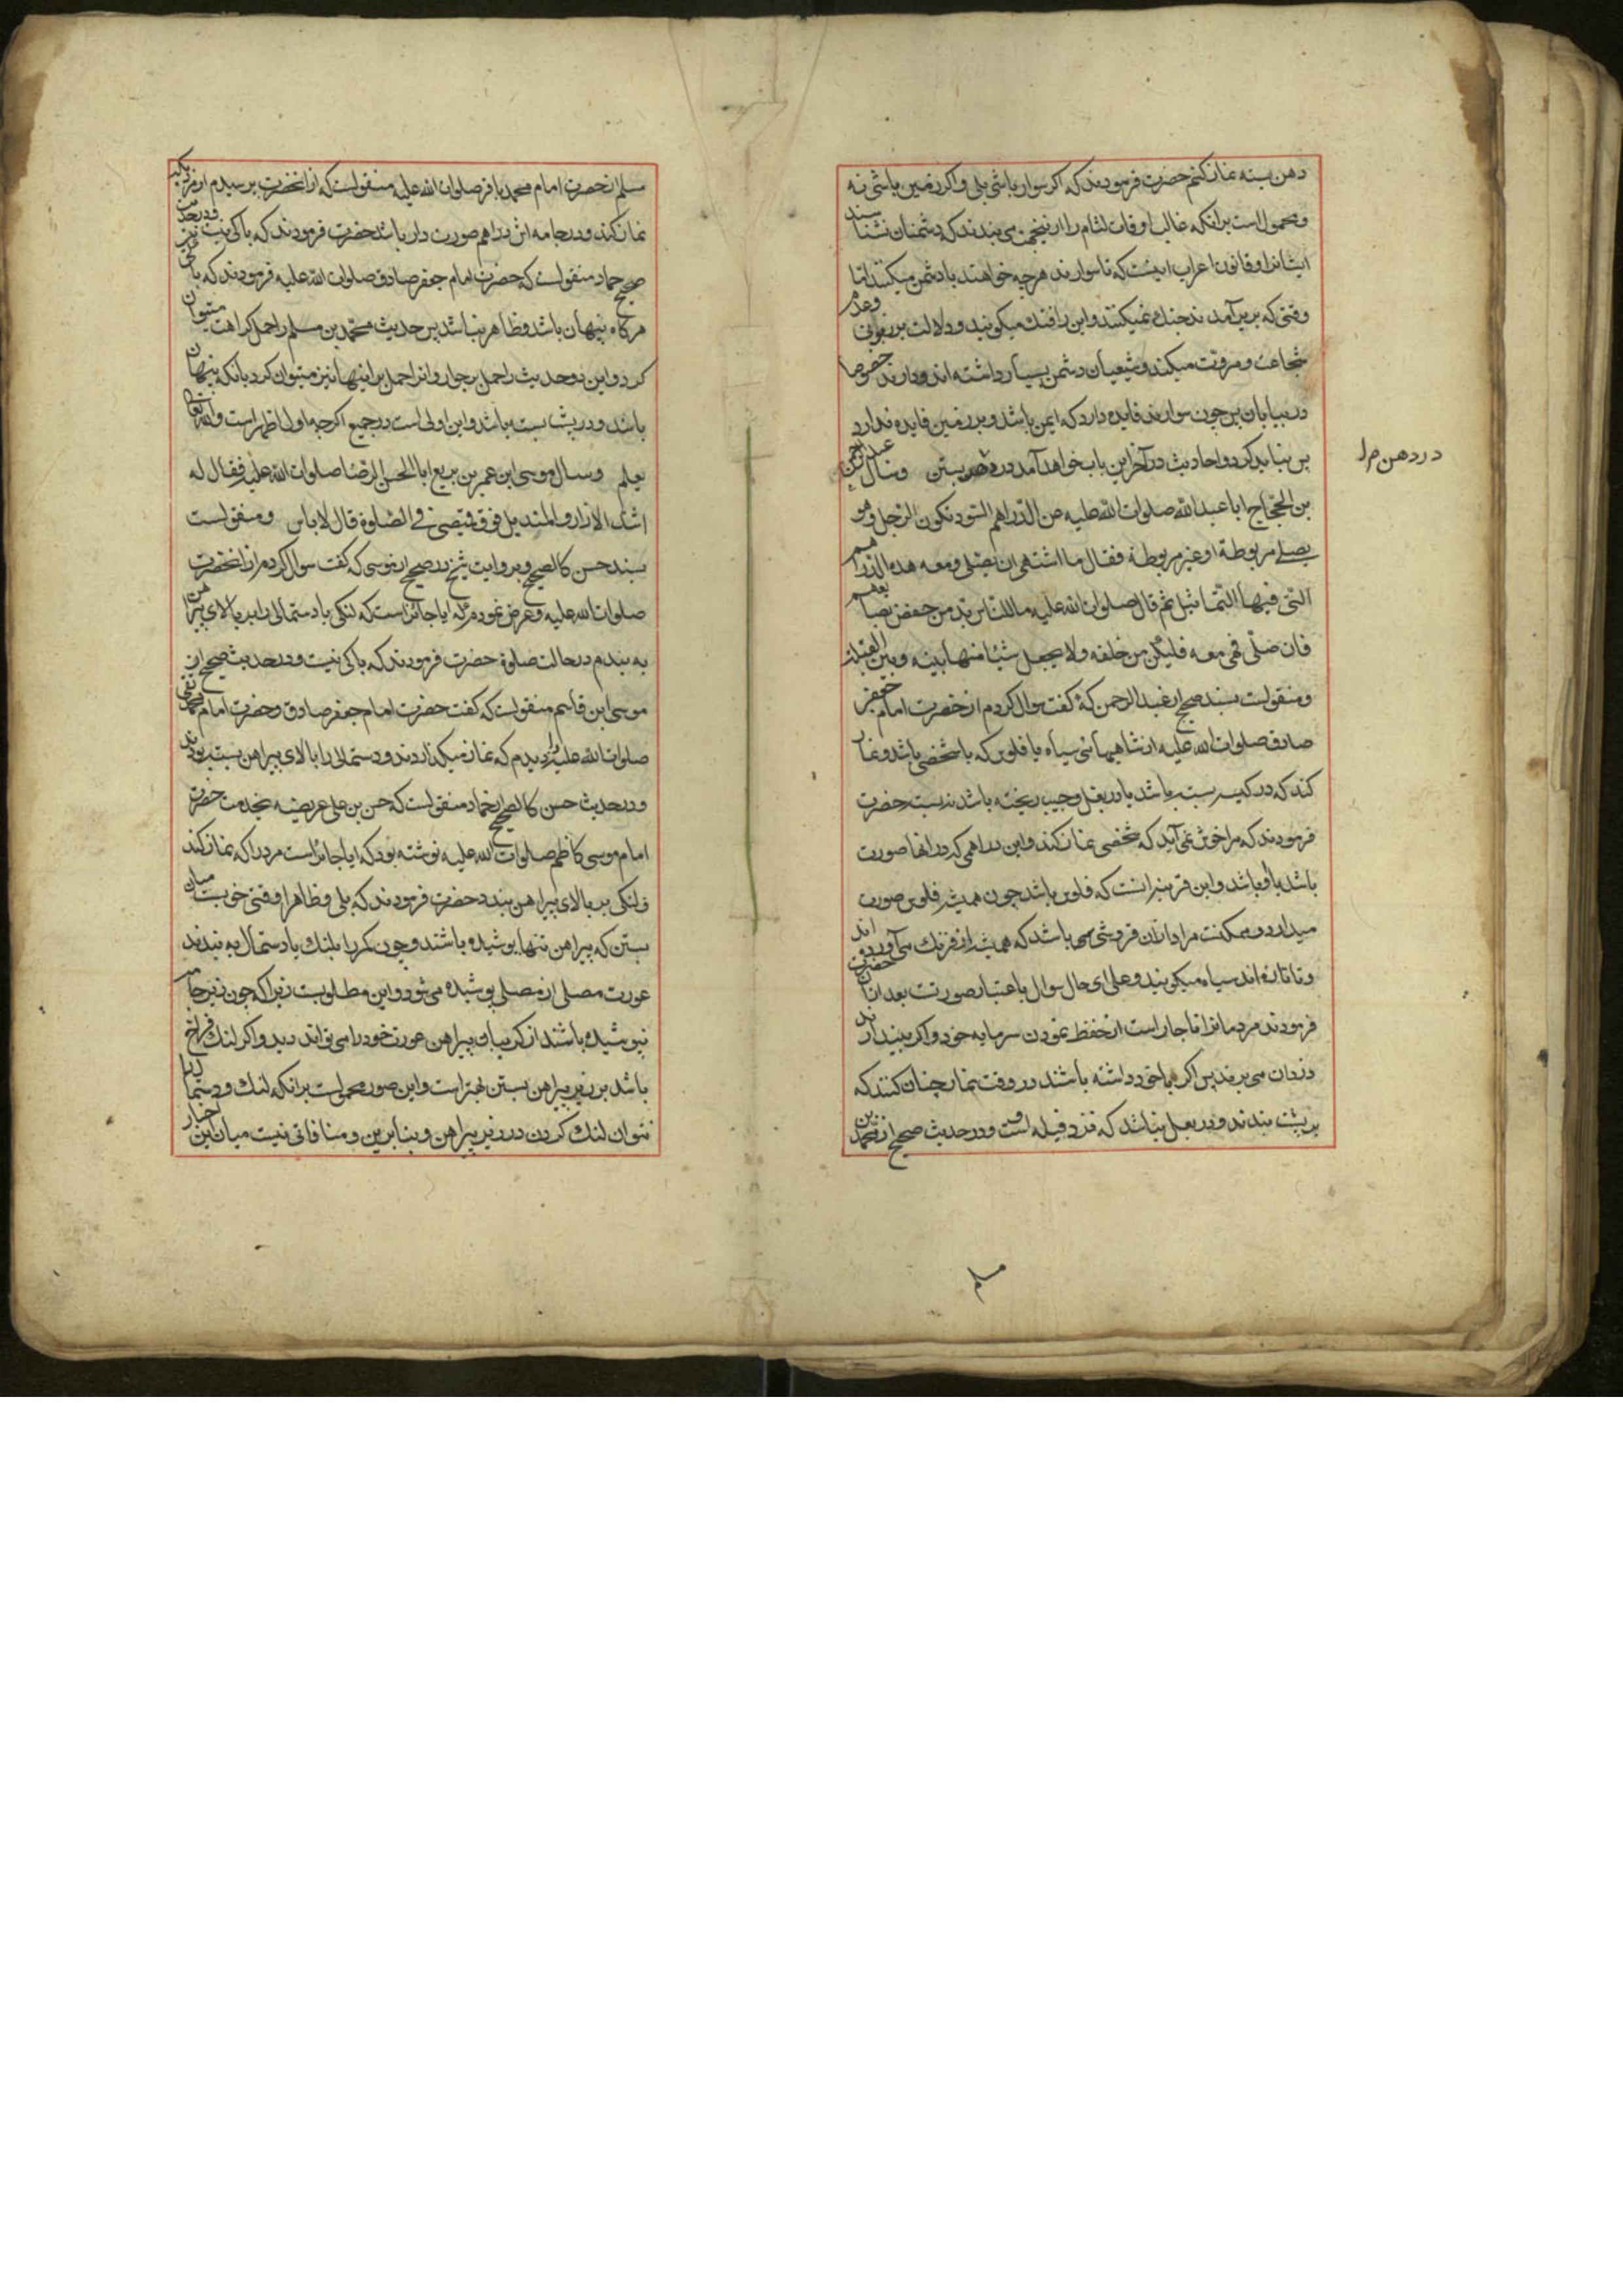 دهن بسته نماز کنم حضرت فرمودند که اکر سوار باشی بلی و اکر بر زمین باشی نه
و محمول است بر انکه غالب اوقات لثام را از می بندند که دشمنان نشناسند
ایشانرا و قانون اعراب اینست که تا سوارند هر چه خواهند با دشمن میکنند اما
وقتی که بزیر آمدند جنك نمیکنند و این را میکویند و دلالت بر و عدم
شجاعت و مروت میکند و شیعیان دشمن بسیار داشته اند و دارند خصوصا
در بیابان پس چون سوارند فایده دارد که ایمن باشد و بر زمین فایده ندارد
پس نباید کرد و احادیث در آخر این باب خواهد آمد در دهن بستن وسأل عبد الرحمن
بن الحجاج ابا عبد الله صلوات الله علیه عن الدراهم السود تکون مع الرجل وهو
یصلی مربوطة او غیر مربوطة فقال ما اشتهی ان یصلی ومعه هذه الدراهم
التی فیها التماثیل ثم قال صلوات الله علیه ما للناس بد من حفظ بضایعهم
فان صلی وهی معه فلیکن من خلفه ولا یجعل شیئا منها بینه وبین القبلة
و منقولست بسند صحیح از عبد الرحمن که کفت سوال کردم از حضرت امام جعفر
صادق صلوات الله علیه از شاهیهائی سیاه یا فلوس که با شخصی باشد و نماز
کند که در کیسه بسته باشد یا در بغل و جیب ریخته باشد نه بسته حضرت
فرمودند که مرا خوش نمی آید که شخصی نماز کند و این دراهمی که در انها صورت
باشد با او باشد و این قرینه انست که فلوس باشد چون همیشه فلوس صورت
میدارد و ممکنست مراد ازان قروشی باشد که همیشه از فرنك می آورده اند
و تا تازه اند سیاه میکویند و علی ای حال سوال باعتبار صورتست بعد ازان حضرت
فرمودند مردمانرا ناچار است از حفظ نمودن سرمایه خود و اکر بیندازند
دزدان می برند پس اکر با خود داشته باشند در وقت نماز چنان کنند که
بر پشت بندند و در بغل نباشد که نزد قبله است و در حدیث صحیح از محمد بن
در دهن م ل
مسلم
مسلم از حضرت امام محمد باقر صلوات الله علیه منقولست که از انحضرت پرسیدم از مردیکه
نماز کند و در جامه اش دراهم صورت دار باشد حضرت فرمودند که باکی نیست و در حدیث
صحیح حماد منقولست که حضرت امام جعفر صادق صلوات الله علیه فرمودند که باکی نیست
هر کاه پنهان باشد و ظاهر نباشد پس حدیث محمد بن مسلم را حمل بر کراهت میتوان
کرد و این دو حدیث را حمل بر جواز و انرا حمل بر اینها نیز میتوان کرد بانکه پنهان
باشد و در پشت بسته باشد و این اولی است در جمیع اکرچه اول اظهر است والله تعالی
یعلم وسال موسی ابن عمر بن بزیع ابا الحسن الرضا صلوات الله علیه فقال له
اشد الازار والمندیل فوق قمیصی فی الصلوة قال لا باس و منقولست
بسند حسن کالصحیح و بروایت شیخ در صحیح از موسی که کفت سوال کردم از انحضرت
صلوات الله علیه و عرض نمودم که ایا جائز است که لنکی یا دستمالی را بر بالای پیراهن
به بندم در حالت صلوة حضرت فرمودند که باکی نیست و در حدیث صحیح از
موسی ابن قاسم منقولست که کفت حضرت امام جعفر صادق و حضرت امام محمد تقی
صلوات الله علیه را دیدم که نماز میکذاردند و دستمالی را بالای پیراهن بسته بودند
و در حدیث حسن کالصحیح از حماد منقولست که حسن بن علی عریضه بخدمت حضرت
امام موسی کاظم صلوات الله علیه نوشته بود که ایا جائز است مرد را که نماز کند
و لنکی بر بالای پیراهن بندد حضرت فرمودند که بلی و ظاهرا وقتی خوبست میان
بستن که پیراهن تنها پوشیده باشند و چون کمر را بلنك یا دستمال به بندند
عورت مصلی از مصلی پوشیده می شود و این مطلوبست زیرا که چون زیر جامه
نپوشیده باشند از کریبان پیراهن عورت خود را می تواند دید و اکر لنك فراخ
باشد بر زیر پیراهن بستن بهتر است و این صور محمولست بر انکه لنك و دستمال را
نتوان لنك کردن در زیر پیراهن و بنابرین و منافاتی نیست میان این اخبار